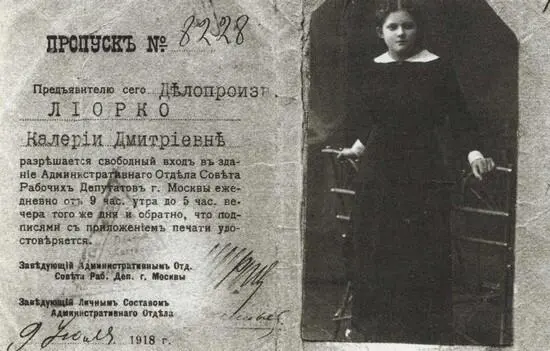 ПРОПУСКЪ № 8228
Предъявителю сего Дѣлопроиз
ЛІОРКО
Калеріи Дмитріевнѣ
разрѣшается свободный входъ въ зда-
ніе Административнаго Отдѣла Совѣта
Рабочихъ Депутатовъ г. Москвы еже-
дневно отъ 9 час. утра до 5 час. ве-
чера того же дня и обратно, что под-
писями съ приложеніемъ печати удо-
стовѣряется.
Завѣдующій Административнымъ Отд.
Совѣта Раб. Деп. г. Москвы
Завѣдующій Личнымъ Составомъ
Административнаго Отдѣла
9 Іюля 1918 г.